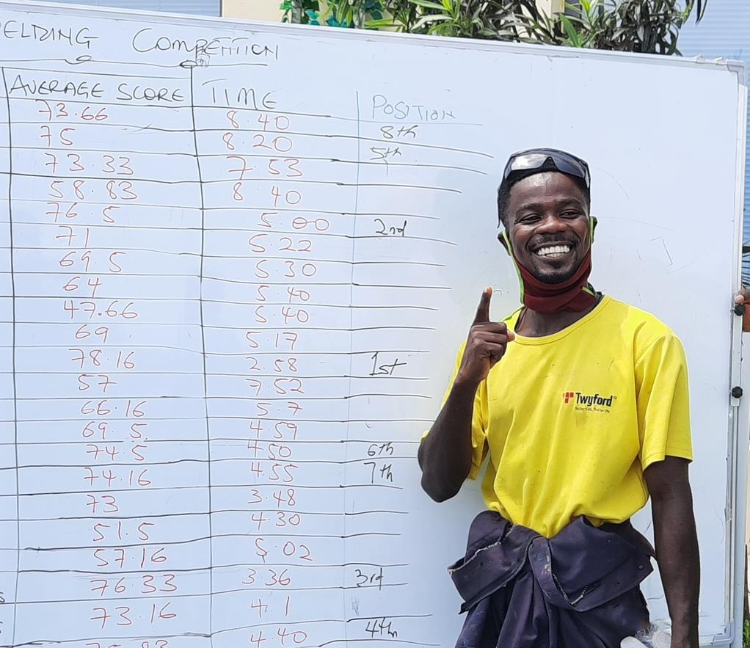 ELDING COMPETITION
AVERAGE SCORE TIME POSITION
73.66 8.40 8th
75 8.20 5th
73.33 7.53
58.83 8.40
76.5 5.00 2nd
71 5.22
69.5 5.30
64 5.40
47.66 5.40
69 5.17
78.16 2.58 1st
57 7.52
66.16 5.7
69.5 4.59
74.5 4.50 6th
74.16 4.55 7th
73 3.48
51.5 4.30
57.16 5.02
76.33 3.36 3rd
73.16 4.1
4.40 4th
Twyford